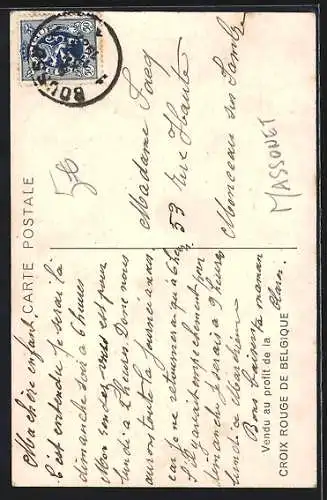 CARTE POSTALE
BOU
56
MASSONET
Madame Sacq
53 rue Haute
Monceau sur Sambre
Vendu au profit de la
CROIX ROUGE DE BELGIQUE
Ma chère enfant
C'est entendu je serai là
dimanche soir à 6 heures
Mon rendez-vous est pour
lundi à 2 heures Donc nous
aurons toute la journée à nous
car je ne retournerai qu'à 6 h
S'il y avait empêchement pour
dimanche je serais à 9 heures
lundi à Marchienne
Bons baisers ta maman